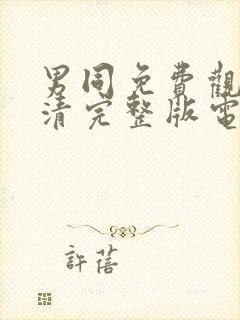 男同免費觀
清完整版電
許蓓